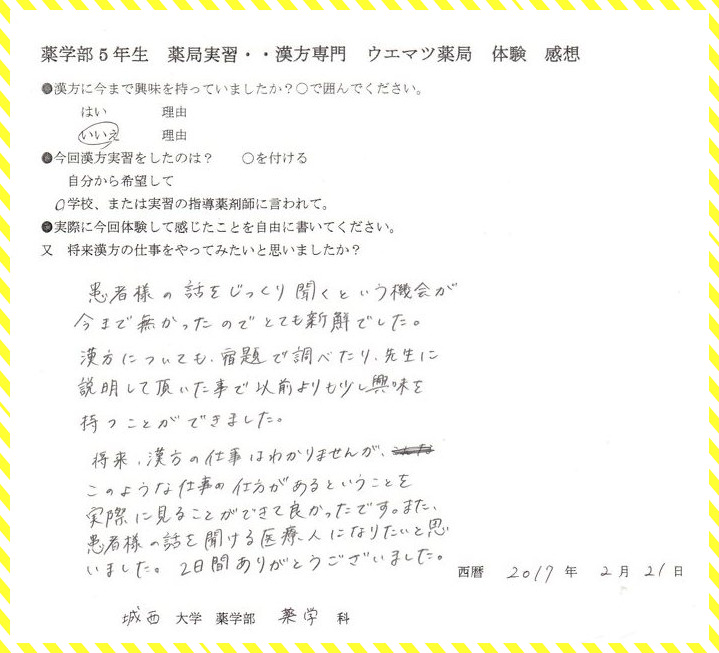 薬学部5年生 薬局実習・・漢方専門 ウエマツ薬局 体験 感想
●漢方に今まで興味を持っていましたか?○で囲んでください。
はい 理由
いいえ 理由
●今回漢方実習をしたのは? ○を付ける
自分から希望して
○学校、または実習の指導薬剤師に言われて。
●実際に今回体験して感じたことを自由に書いてください。
又 将来漢方の仕事をやってみたいと思いましたか?
患者様の話をじっくり聞くという機会が
今まで無かったのでとても新鮮でした。
漢方についても、宿題で調べたり、先生に
説明して頂いた事で以前よりも少し興味を
持つことができました。
将来、漢方の仕事はわかりませんが、
このような仕事の仕方があるということを
実際に見ることができて良かったです。また、
患者様の話を聞ける医療人になりたいと思
いました。2日間ありがとうございました。
西暦 2017年 2月21日
城西大学 薬学部 薬学科